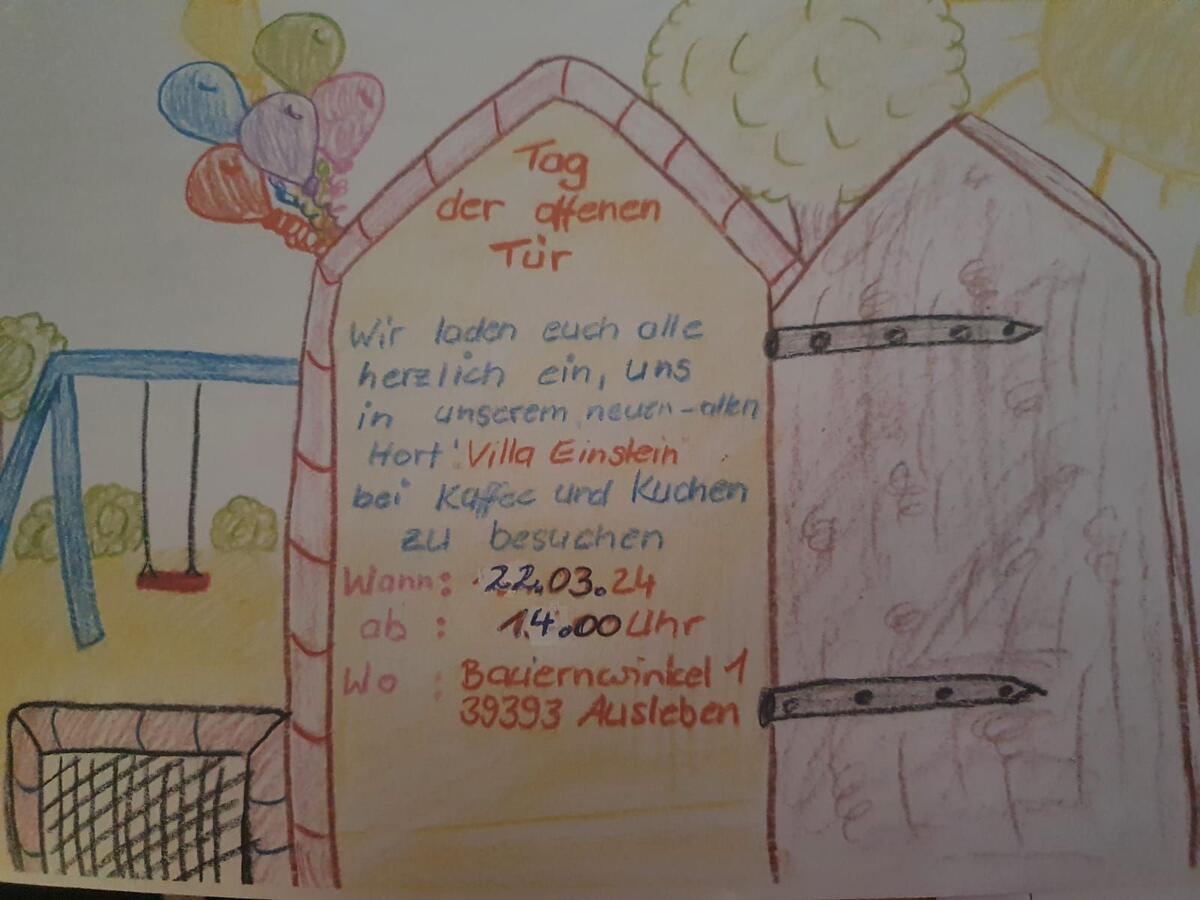 Tag
der offenen
Tür
Wir laden euch alle
herzlich ein, uns
in unserem neuen-alten
Hort "Villa Einstein"
bei Kaffee und Kuchen
zu besuchen
Wann: 22.03.24
ab : 14.00 Uhr
Wo : Bauernwinkel 1
39393 Ausleben